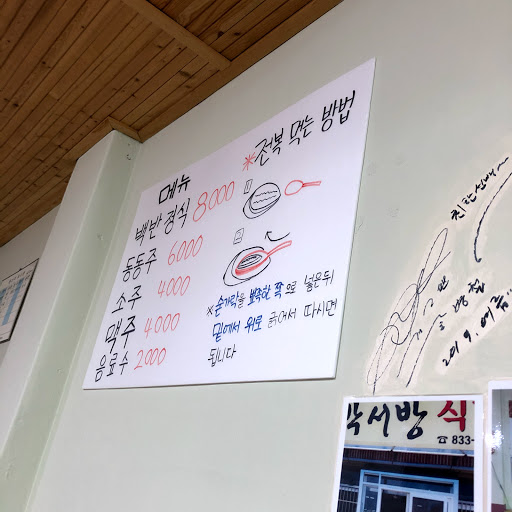 메뉴
백반 정식 8000
동동주 6000
소주 4000
맥주 4000
음료수 2000
※전복 먹는 방법
※ 숟가락을 뾰족한 쪽으로 넣은뒤
밑에서 위로 긁어서 따시면
됩니다
2019. 여름
박서방 식
☎ 833-